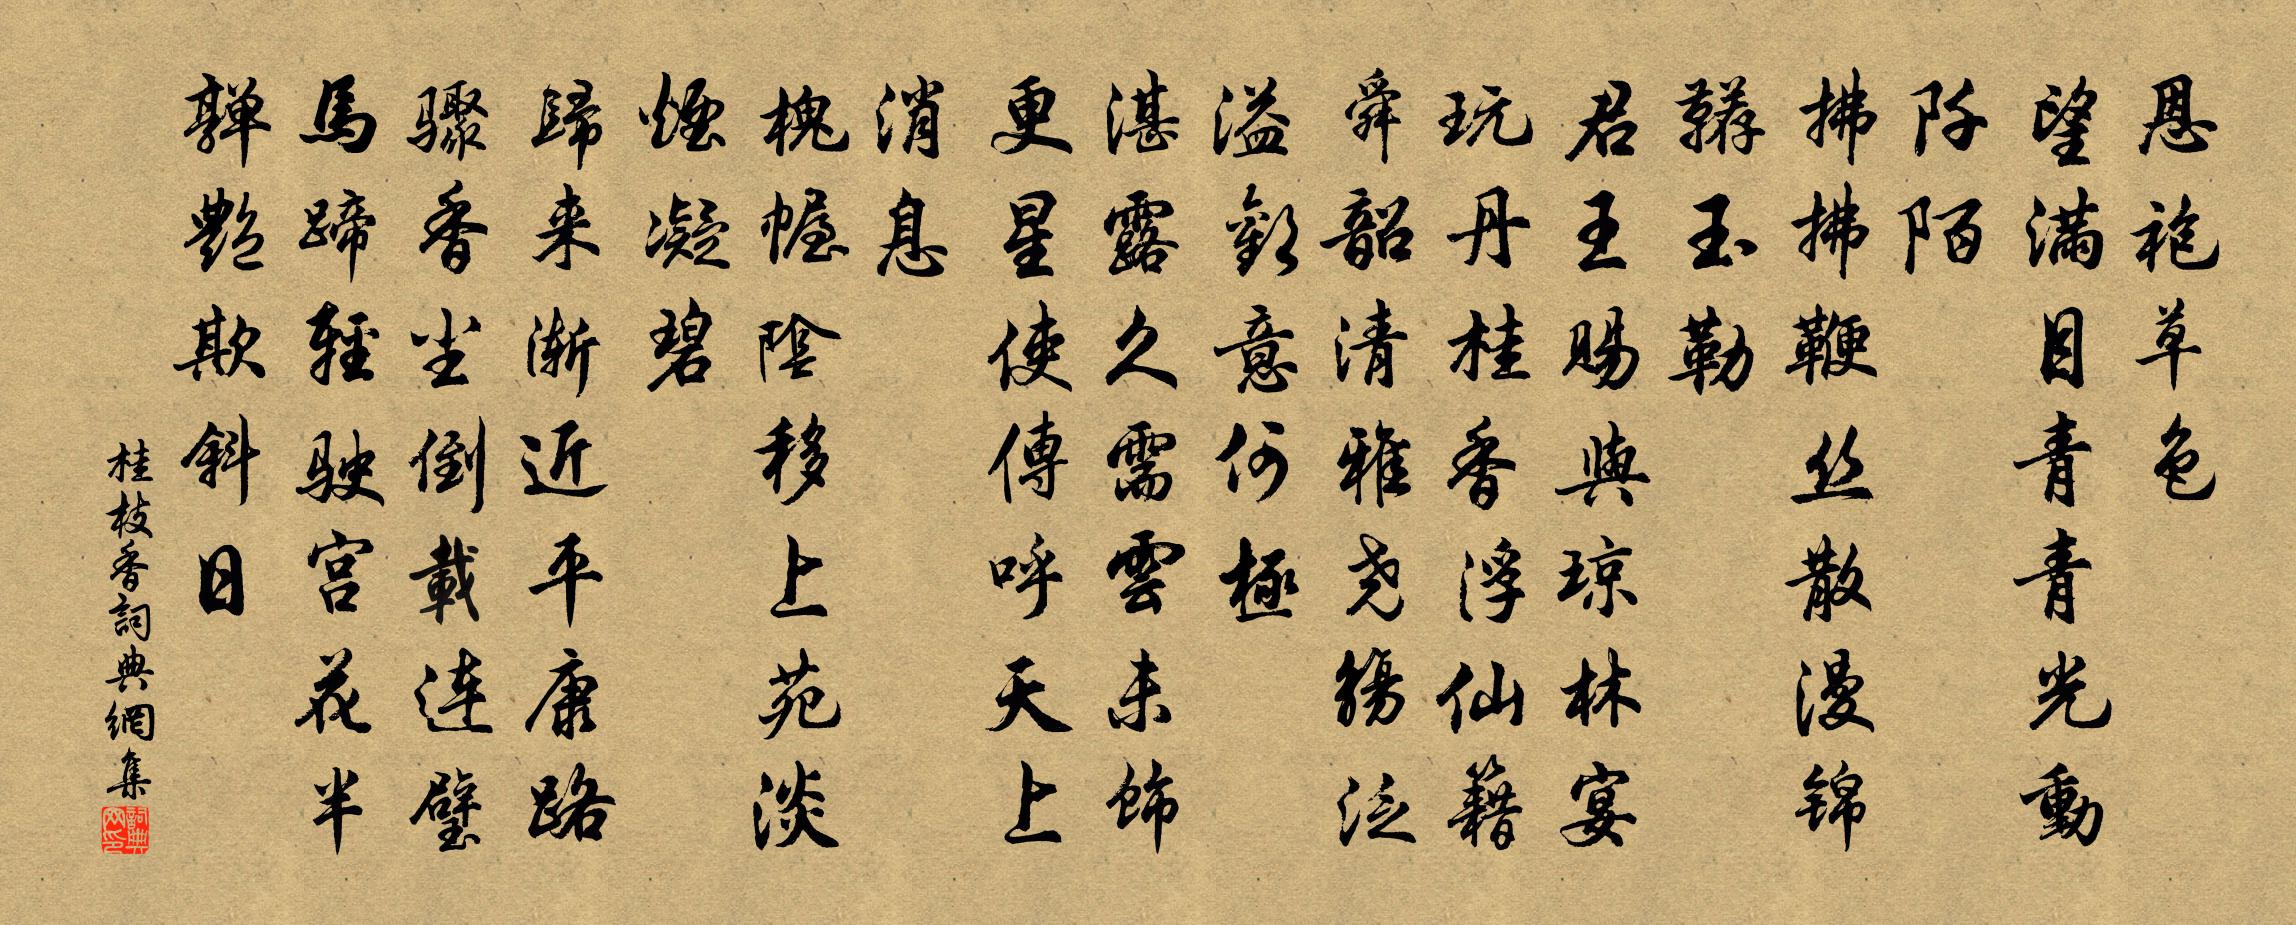 恩袍草色
望滿目青青光動
阡陌
拂拂鞭丝散漫锦
韉玉勒
君王赐與琼林宴
玩丹桂香浮仙籍
舜韶清雅尧觴泛
溢歡意何極
湛露久需雲未饰
更星使傳呼天上
消息
槐幄陰移上苑淡
煙凝碧
歸来渐近平康路
骤香尘倒載連璧
馬蹄輕駛宫花半
嚲艷欺斜日
桂枝香詞典網集
詞典网印